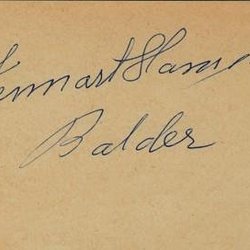 Lennart Hans
Balder